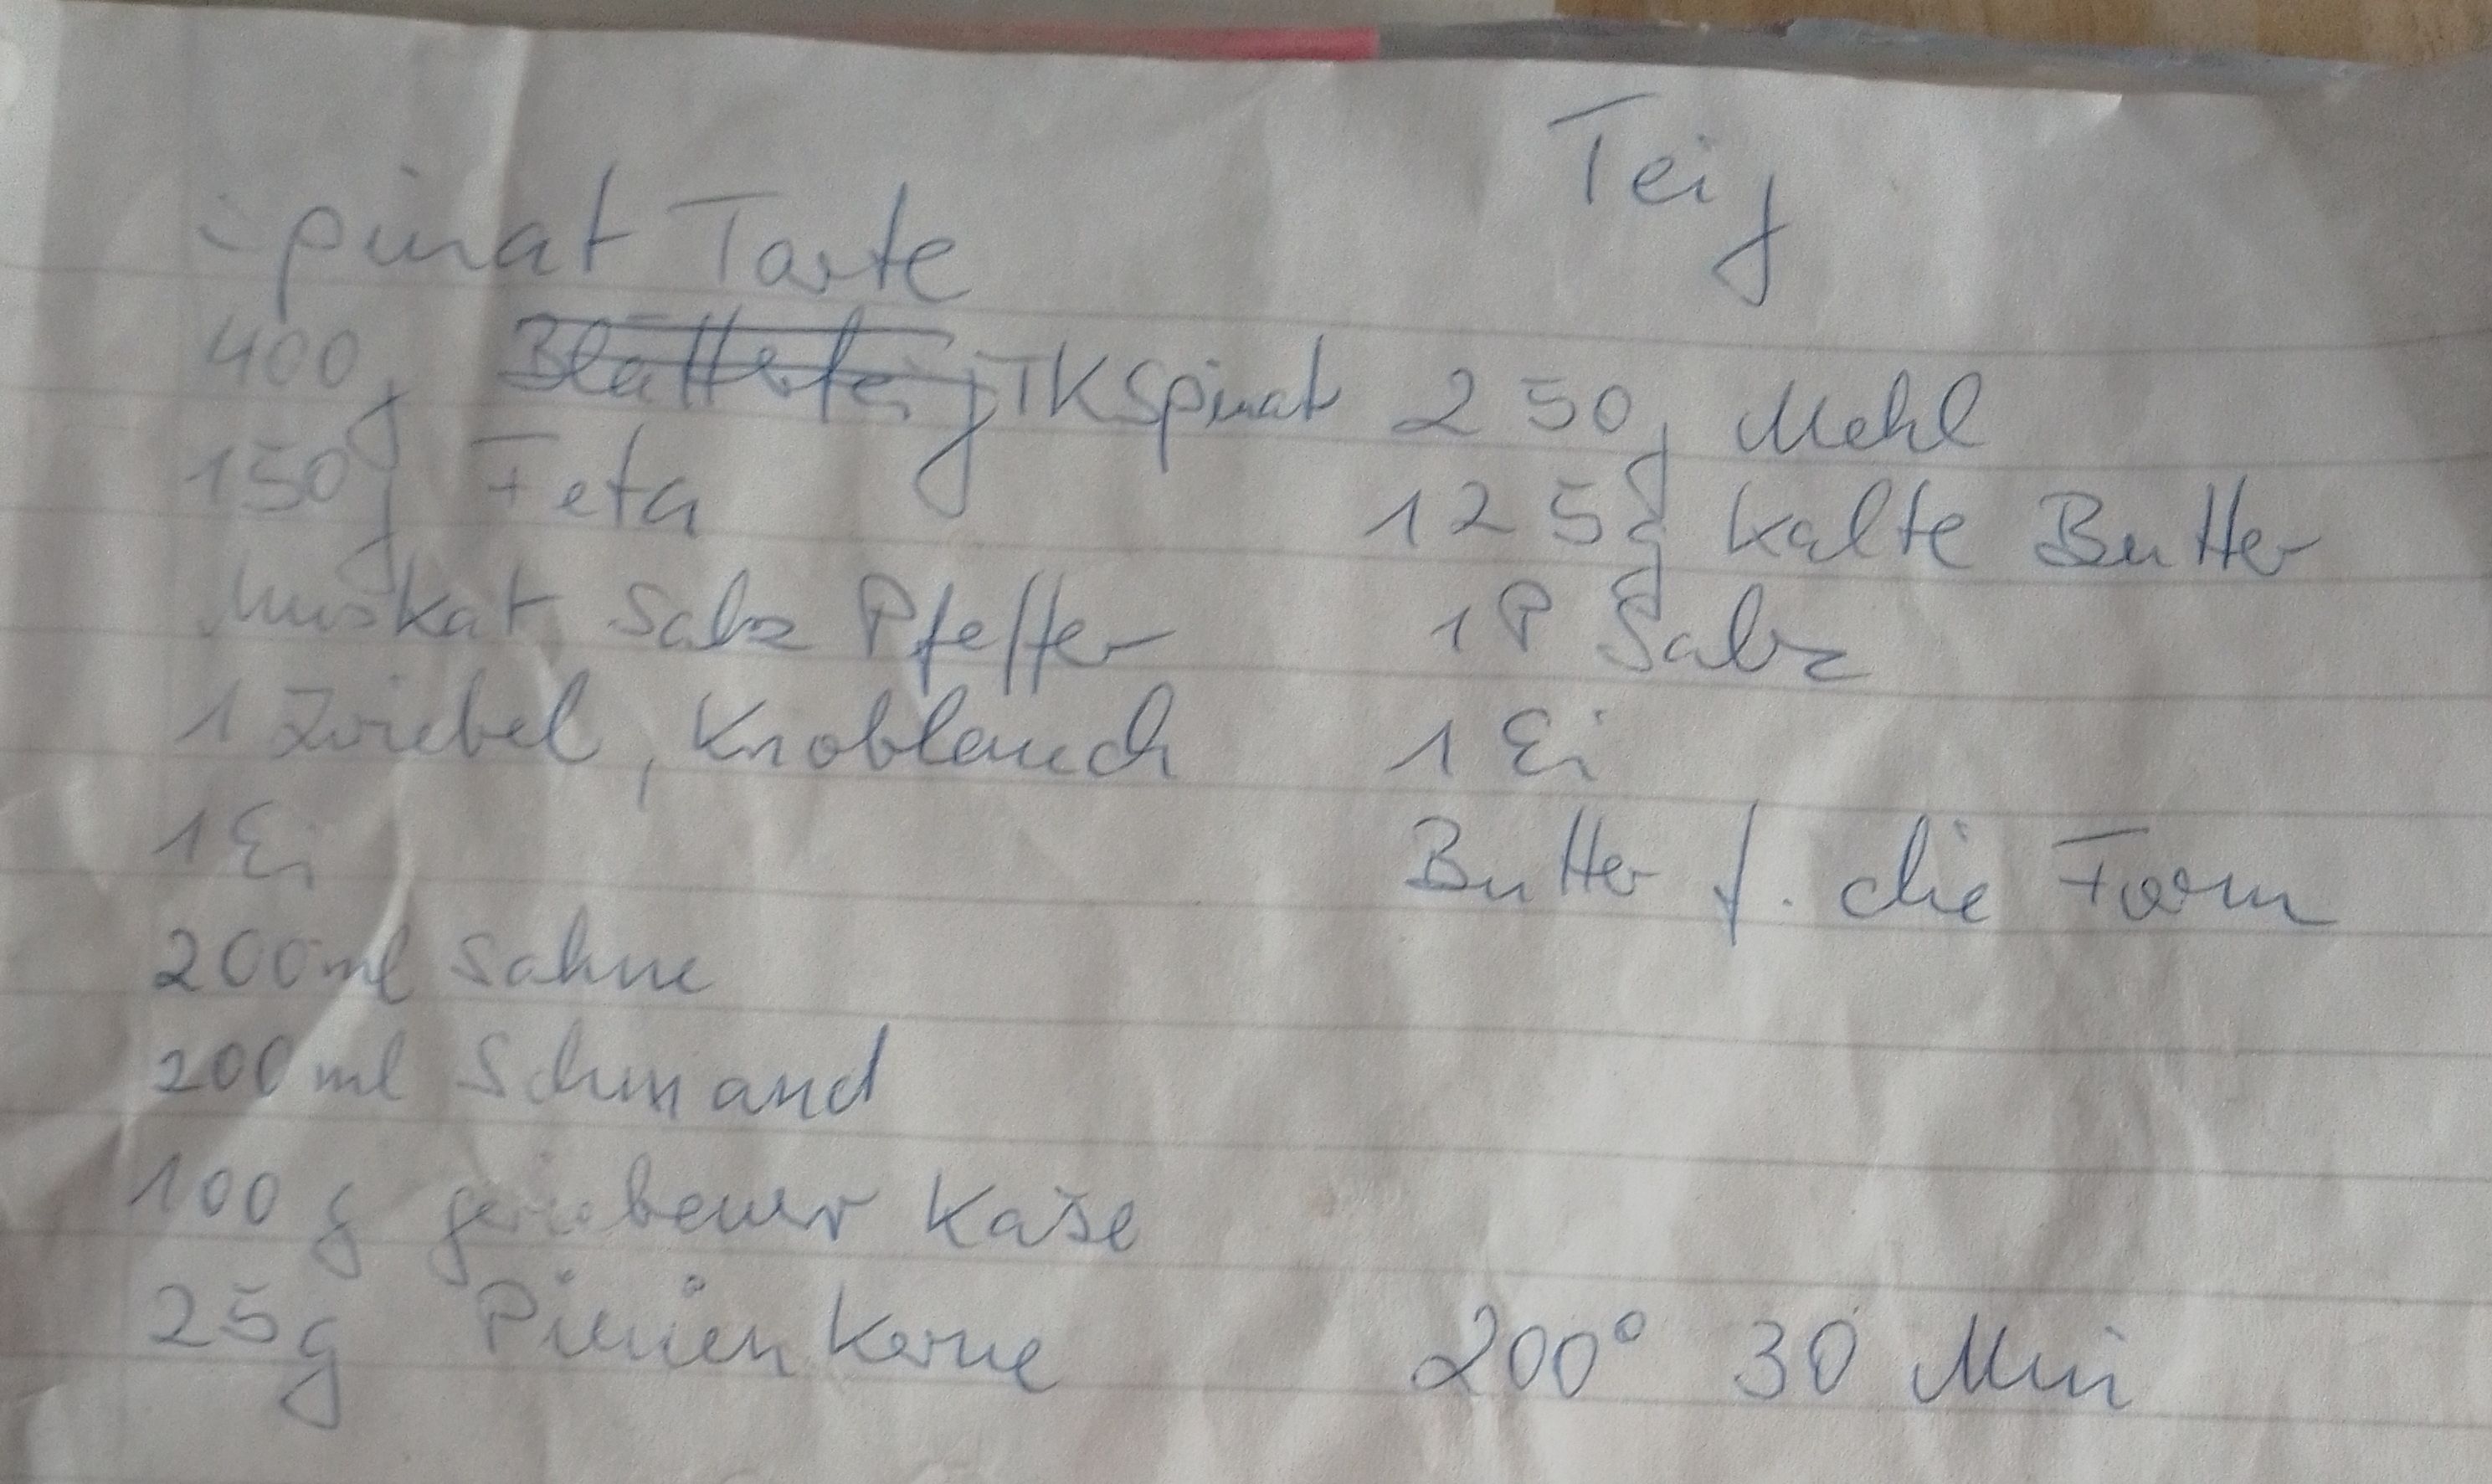 Spinat Tarte
400g Blätterteig TK Spinat
150g Feta
Muskat Salz Pfeffer
1 Zwiebel, Knoblauch
1 Ei
200ml Sahne
200ml Schmand
100g geriebener Käse
25g Pinienkerne
Teig
250g Mehl
125g kalte Butter
1P Salz
1 Ei
Butter f. die Form
200° 30 Min